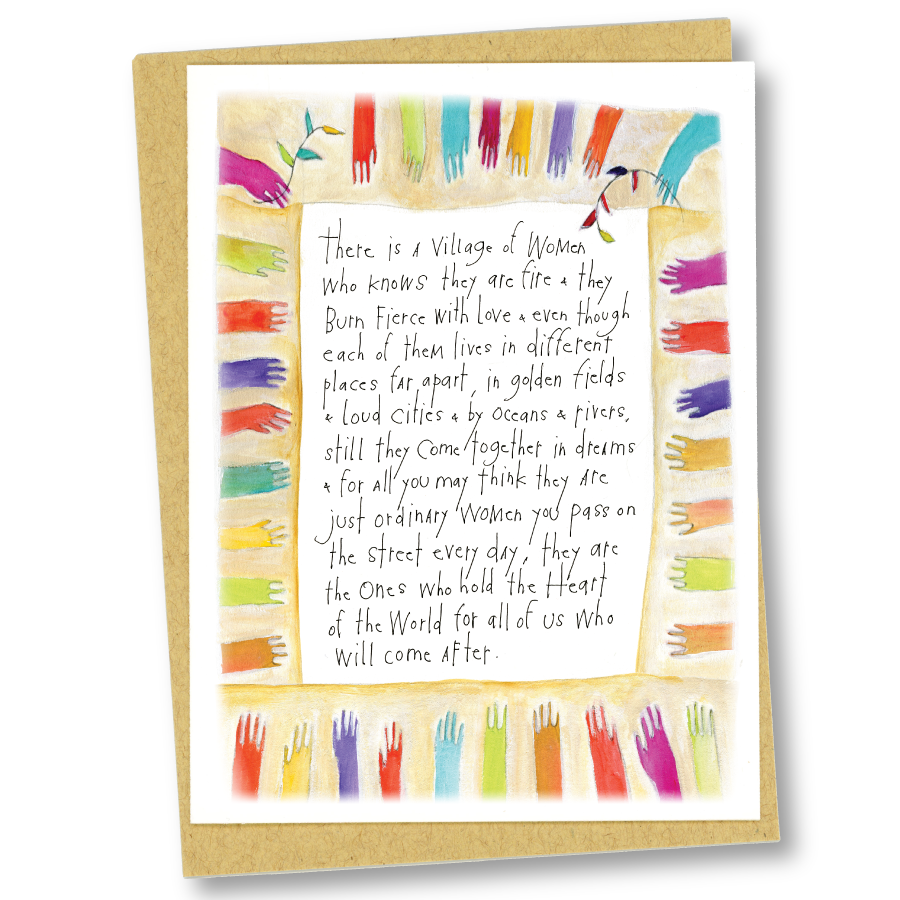 There is a Village of Women
who knows they are fire & they
Burn Fierce with Love & even though
each of them lives in different
places far apart, in golden fields
& loud cities & by oceans & rivers,
still they come together in dreams
& for all you may think they are
just ordinary women you pass on
the street every day, they are
the Ones who hold the Heart
of the World for all of us who
will come after.